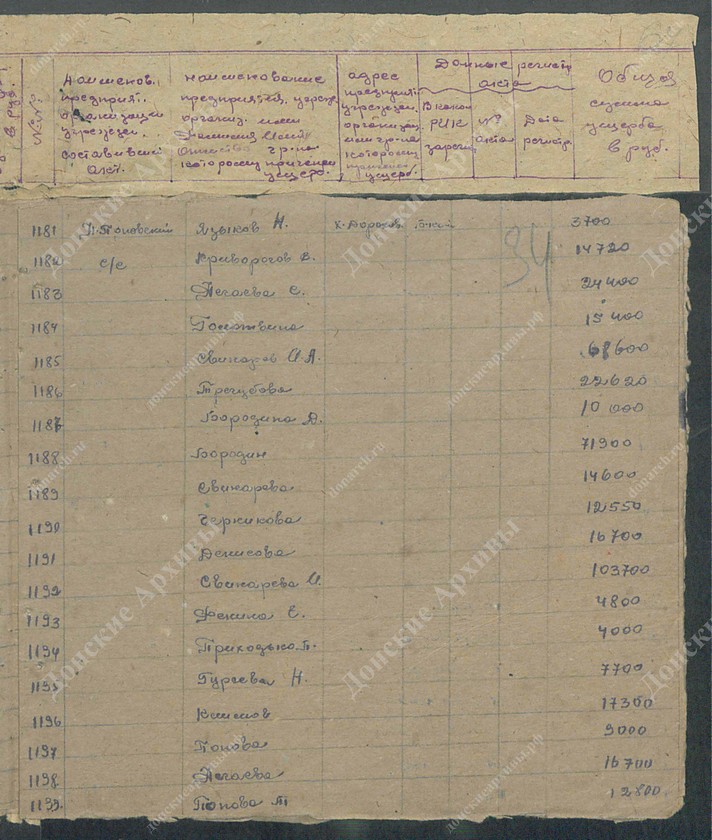 №№
Наименов. предприят. организации учрежден. составивший Акт.
Наименование предприятия, учрежд. организ. или Фамилия Имя Отчество гр-на которому причинен ущерб.
адрес предприят. учрежден. организац. или гр-на которому причинен ущерб.
Данные регистр акта
В каком РИК зарегис
№ Акта
Дата регистр.
Общая сумма ущерба в руб.
1181 Н. Поповский Языков Н. х. Дорогов 3700
1182 с/с Криворогов В. 14720
1183 Негаева Е. 24400
1184 15400
1185 И А. 68600
1186 Трегубова 22620
1187 Бородина Д. 10000
1188 Бородин 71900
1189 Свинарева 14600
1190 Черникова 12550
1191 Денисова 16700
1192 Свинарева И. 103700
1193 Фекина Е. 4800
1194 Приходько П. 4000
1195 Гуреева Н. 7700
1196 Климов 17300
1197 Попова 9000
1198 Негаева 16700
1199. Попова Т 12800
34
Донские Архивы
donarch.ru
донскиеархивы.рф